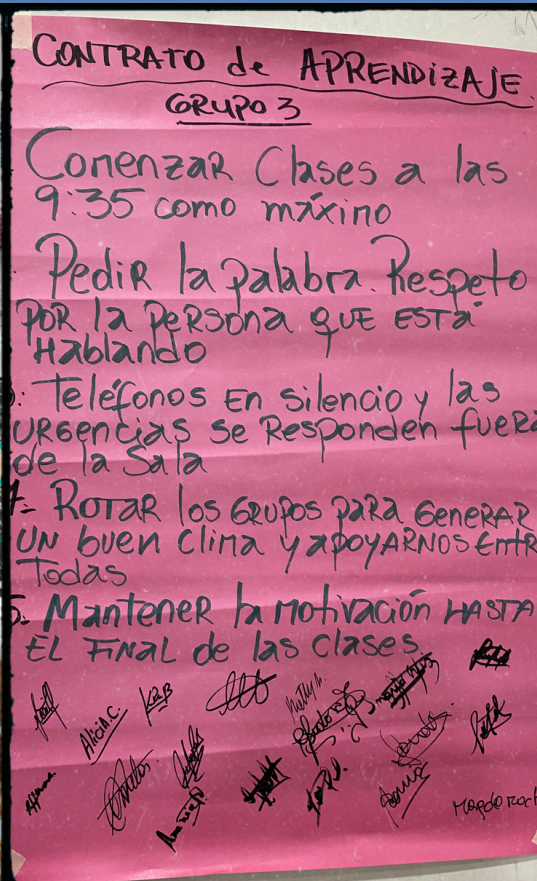 CONTRATO de APRENDIZAJE.
GRUPO 3
Comenzar Clases a las
9:35 como máximo
Pedir la Palabra. Respeto
POR la PERSONA QUE ESTá
Hablando
Teléfonos En Silencio y las
URGENCIAS Se Responden fuera
de la Sala
4.- Rotar los GRUPOS para GENERAR
UN buen Clima y apoyarnos Entre
Todas
5.- Mantener la Motivación HASTA
EL FINAL de las clases.
Alicia.C.